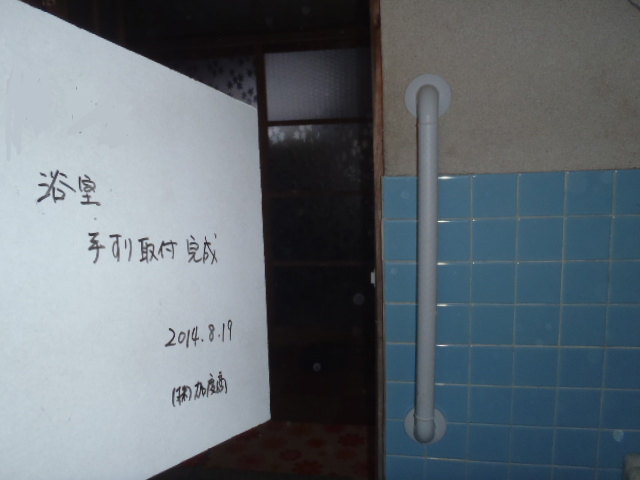 浴室
手すり取付完成
2014.8.19
(株)加度商